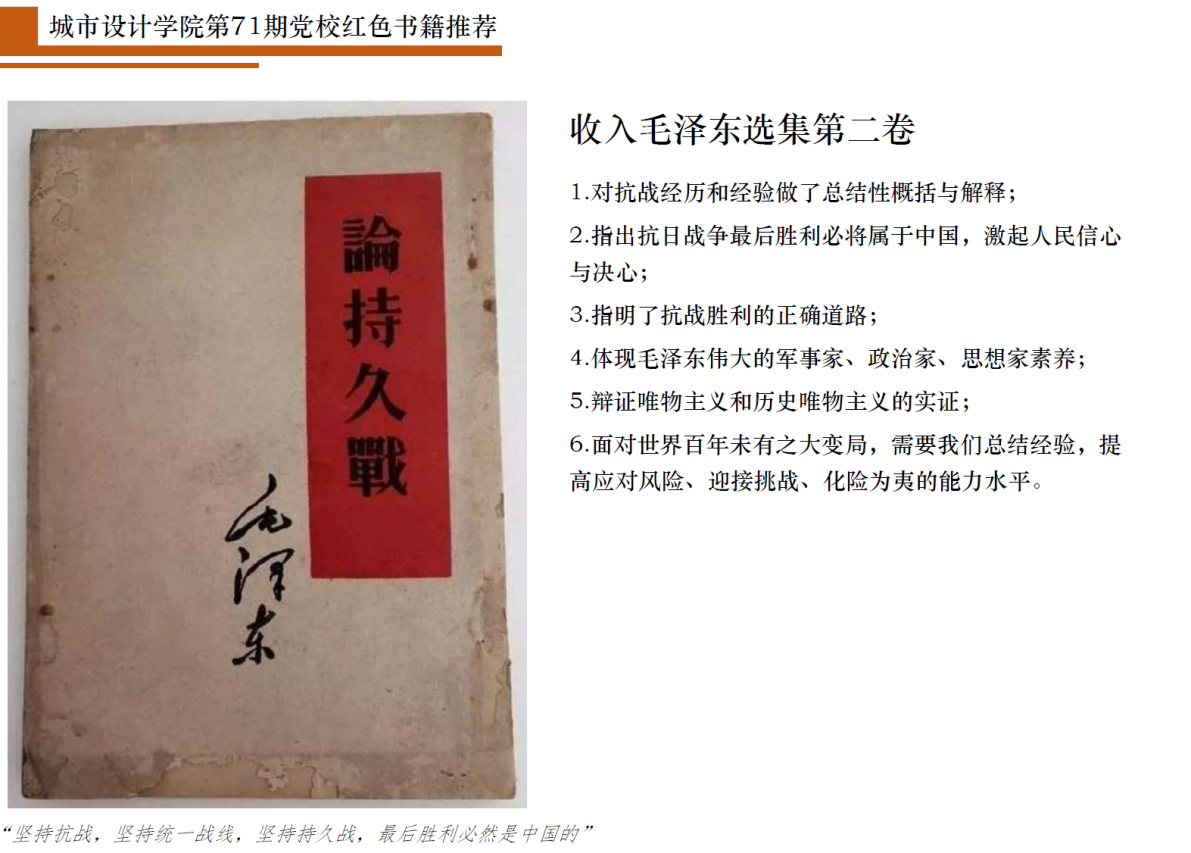 城市设计学院第71期党校红色书籍推荐
論持久戰
毛泽东
收入毛泽东选集第二卷
1.对抗战经历和经验做了总结性概括与解释；
2.指出抗日战争最后胜利必将属于中国，激起人民信心
与决心；
3.指明了抗战胜利的正确道路；
4.体现毛泽东伟大的军事家、政治家、思想家素养；
5.辩证唯物主义和历史唯物主义的实证；
6.面对世界百年未有之大变局，需要我们总结经验，提
高应对风险、迎接挑战、化险为夷的能力水平。
“坚持抗战，坚持统一战线，坚持持久战，最后胜利必然是中国的”